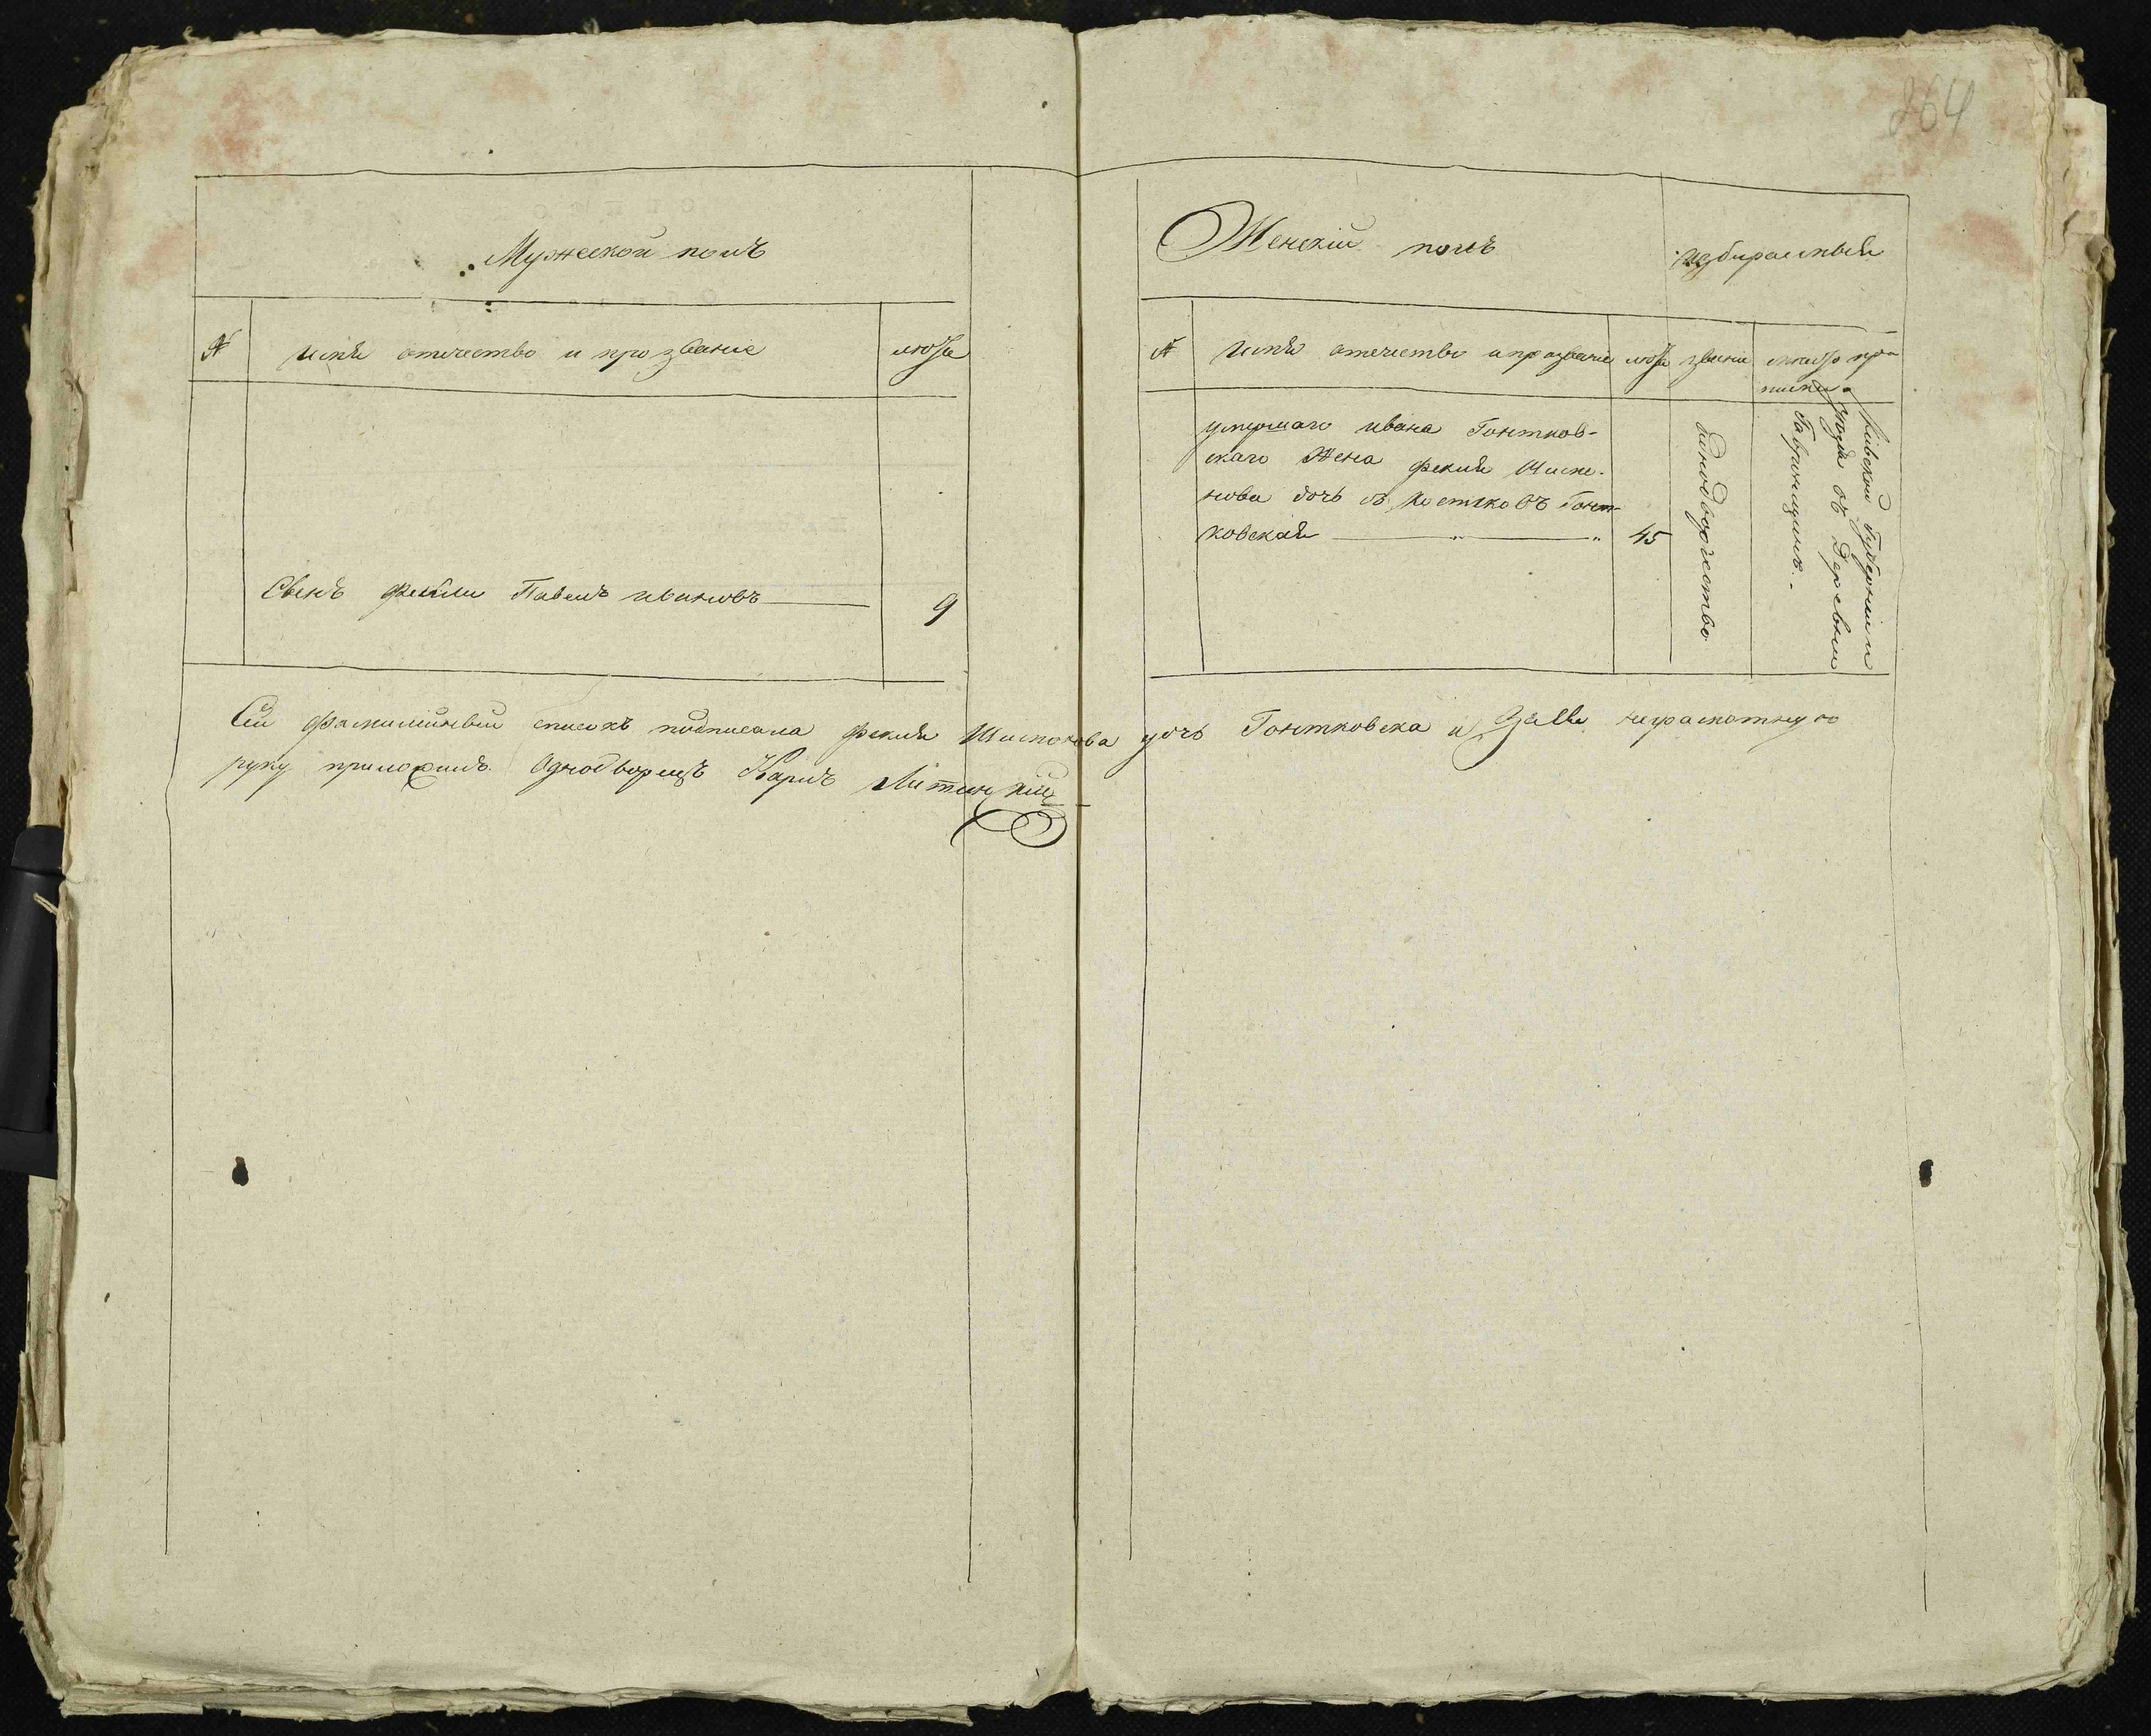 264
Мужеской полъ
№ имя отечество и прозвание лѣта
Сынъ Феклы Павелъ ивановъ 9
Женскій полъ избираемый
№ имя отечество и прозвание лѣта звание место при-
писки
умершаго ивана Гонтков-
скаго Жена Фекла
нова дочь съ Костковъ Гонт-
ковская 45
Одноворчество
Киевской Губернии и
уезда въ Деревни
Гавронщинѣ.
Сей фамилийный списокъ подписала Фекла дочь Гонтковска и Заеѣ неграмотную
руку приложилъ Однодворецъ Карлъ Литинский